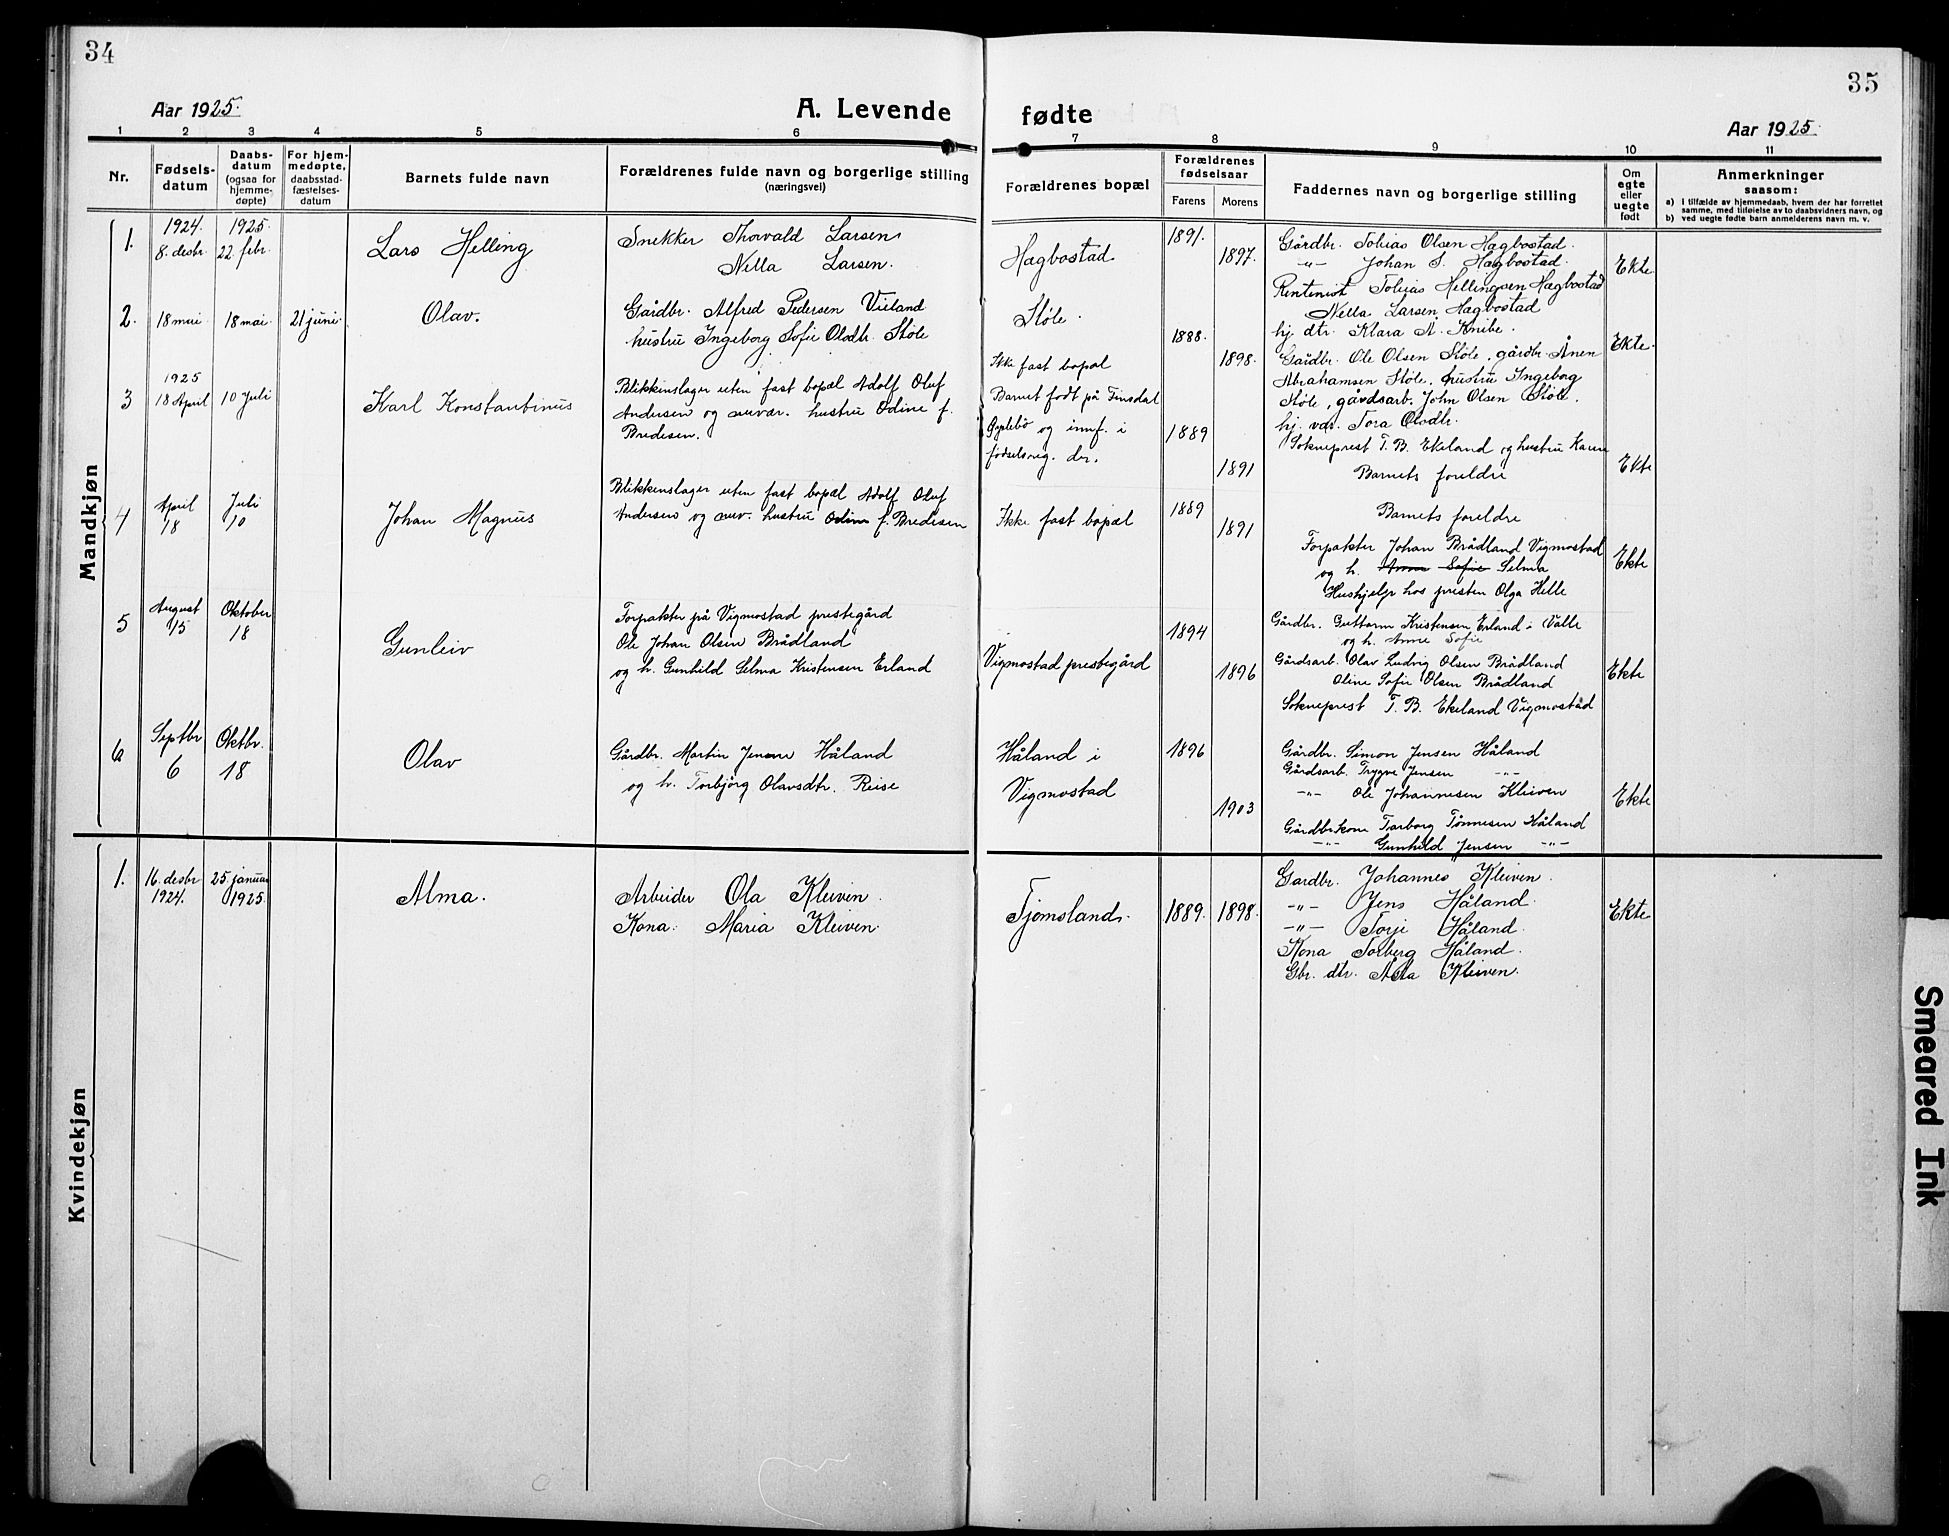 34
Aar 1925.
A. Levende
1
2
3
4
5
6
Nr.
Fødsels-
datum
Daabs-
datum
(ogsaa for
hjemme-
døpte)
For hjem-
medøpte,
daabsstad-
fæstelses-
datum
Barnets fulde navn
Forældrenes fulde navn og borgerlige stilling
(næringsvei)
Mandkjøn
1.
1924.
8. desbr.
1925.
22. febr.
Lars Helling
Snekker Thorvald Larsen
Nella Larsen.
2.
18 mai
18 mai.
21 juni.
Olav.
Gårdbr. Alfred Pedersen Vieland
hustru Ingeborg Sofie Olsdtr. Støle
3
1925
18 April
10 Juli
Karl Konstantinus
Blikkenslager uten fast bopæl Adolf Oluf
Andersen og hustru Odine f.
Bredesen.
4
April
18
Juli
10
Johan Magnus
Blikkenslager uten fast bopæl Adolf Oluf
Andersen og hustru Odine f. Bredesen
5
August
15
Oktober
18
Gunleiv
Forpakter på Vigmostad prestegård
Ole Johan Olsen Brådland
og h. Gunhild Selma Kristensen Erland
6
Septbr
6
Oktbr.
18
Olav
Gårdbr. Martin Jensen Håland
og h. Torbjörg Olavsdtr. Reise
Kvindekjøn
1.
16. desbr
1924.
25 januar
1925.
Alma.
Arbeider Ola Kleiven.
Kona: Maria Kleiven.
35
fødte
Aar 1925.
7
8
9
10
11
Forældrenes bopæl
Forældrenes
fødselsaar
Farens
Morens
Faddernes navn og borgerlige stilling
Om
egte
eller
uegte
født
Anmerkninger
saasom:
a) I tilfælde av hjemmedaab, hvem der har forrettet
samme, med tilføielse av to daabsvidners navn, og
b) ved uegte fødte barn anmelderens navn m. v.
Hægbostad
1891.
1897.
Gårdbr. Tobias Olsen Hægbostad.
-"- Johan S. Hægbostad.
Rentenist Tobias Hellingsen Hægbostad
Nella Larsen Hægbostad
hj. dtr. Klara A. Knibe.
Ekte.
Støle.
1888.
1898.
Gårdbr. Ole Olsen Støle, gårdbr. Ånen
Abrahamsen Støle, hustru Ingeborg
Støle, gårdsarb. John Olsen Støle.
hj. vær. Tora Olsdtr.
Ekte.
Ikke fast bopæl
Barnet født på Finsdal
og innf. i
fødselsreg. der.
1889
1891
Sokneprest T. B. Ekeland og hustru Karen
Barnets foreldre
Ekte
Ikke fast bopæl
1889
1891
Barnets foreldre
Forpakter Johan Brådland Vigmostad
og h. Anne Sofie Selma
Hushjelp hos presten Olga Helle
Ekte
Vigmostad prestegård
1894
1896
Gårdbr. Guttorm Kristensen Erland i Valle
og h. Anne Sofie
Gårdsarb. Olav Ludvig Olsen Brådland
Oline Sofie Olsen Brådland
Sokneprest T. B. Ekeland Vigmostad
Ekte
Håland i
Vigmostad
1896
1903
Gårdbr. Simon Jensen Håland
Gårdsarb. Trygve Jensen -"-
-"- Ole Johannesen Kleiven
Gårdbr.kone Tarborg Tønnesen Håland
-"- Gunhild Jensen -"-
Ekte
Tjomsland.
1889.
1898.
Gardbr. Johannes Kleiven.
-"- Jens Håland.
-"- Torje Håland.
Kona Tolberg Håland.
Gbr. dtr. Kleiven.
Ekte
Smeared Ink